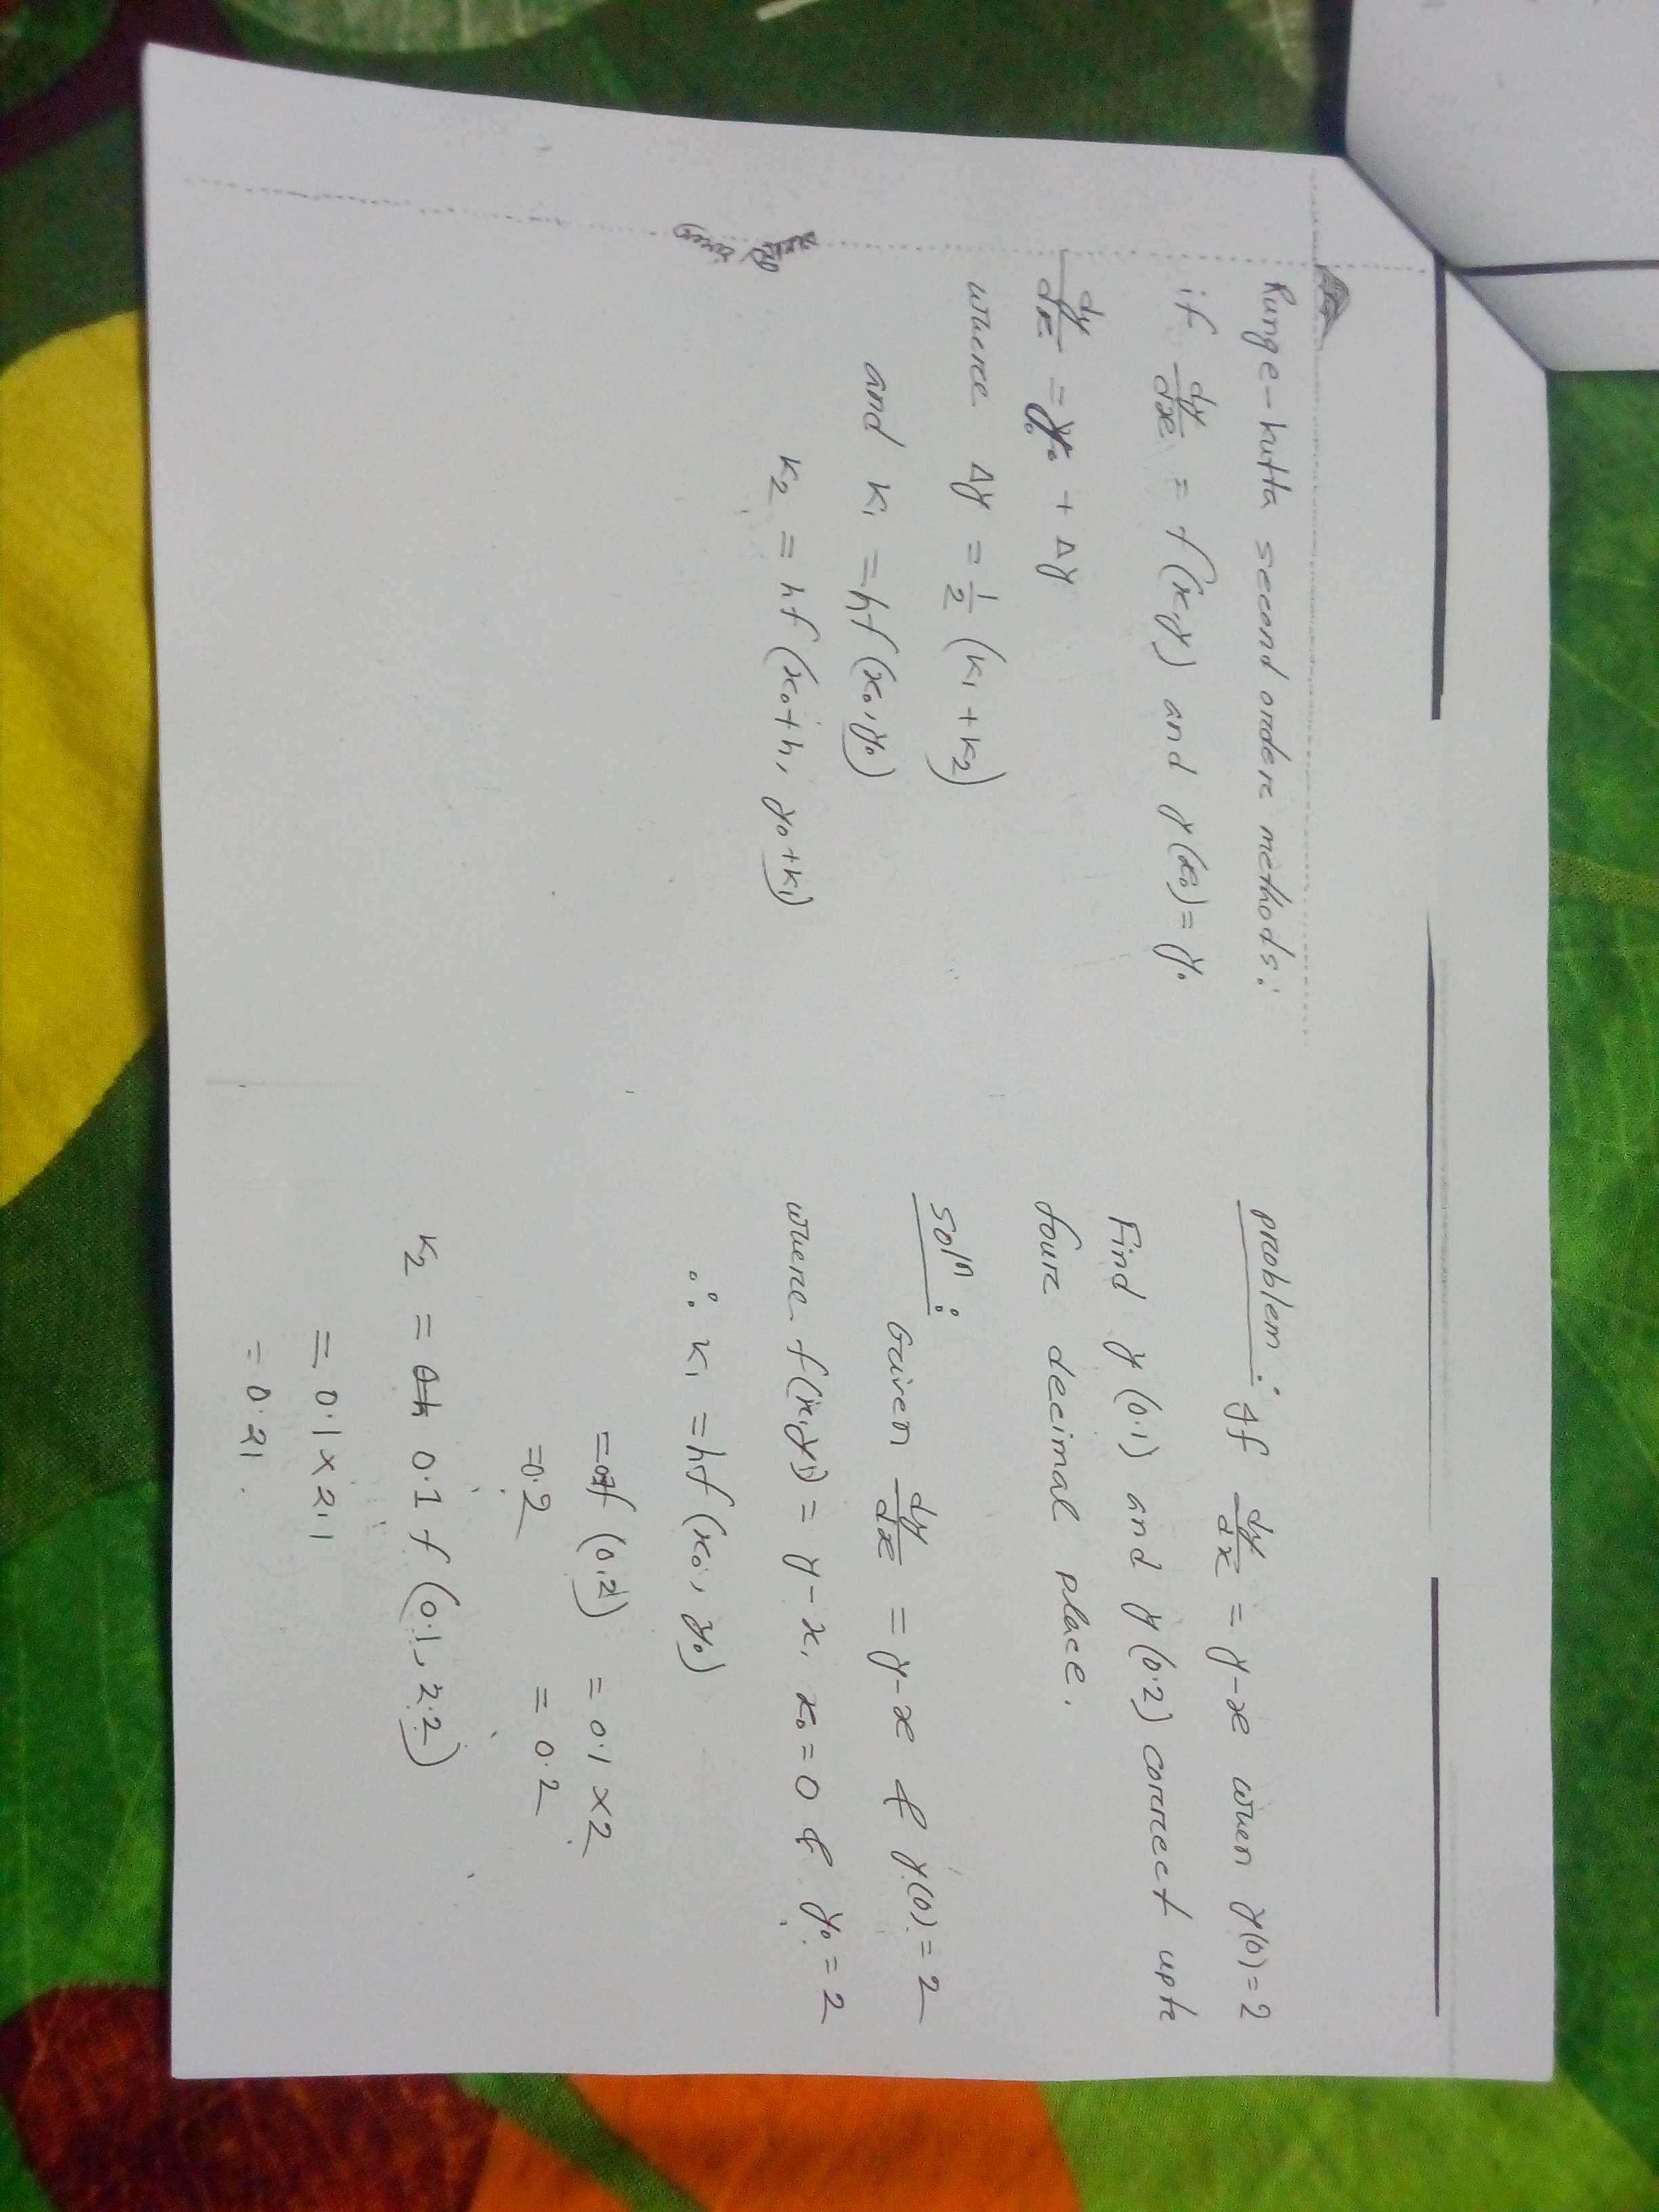 Runge-kutta second order methods:
if dy/dx = f(x,y) and y(x₀) = y₀
dy/dx = y₀ + Δy
where Δy = 1/2 (K₁ + K₂)
and K₁ = hf(x₀, y₀)
K₂ = hf(x₀+h, y₀+K₁)
problem: If dy/dx = y-x when y(0)=2
Find y(0.1) and y(0.2) correct upto
four decimal place.
solⁿ:
Given dy/dx = y-x & y(0) = 2
where f(x,y) = y-x, x₀ = 0 & y₀ = 2
∴ K₁ = hf(x₀, y₀)
= 0.1f (0,2) = 0.1 ×2
=0.2 = 0.2
K₂ = 0.1 f (0.1, 2.2)
= 0.1 × 2.1
= 0.21.